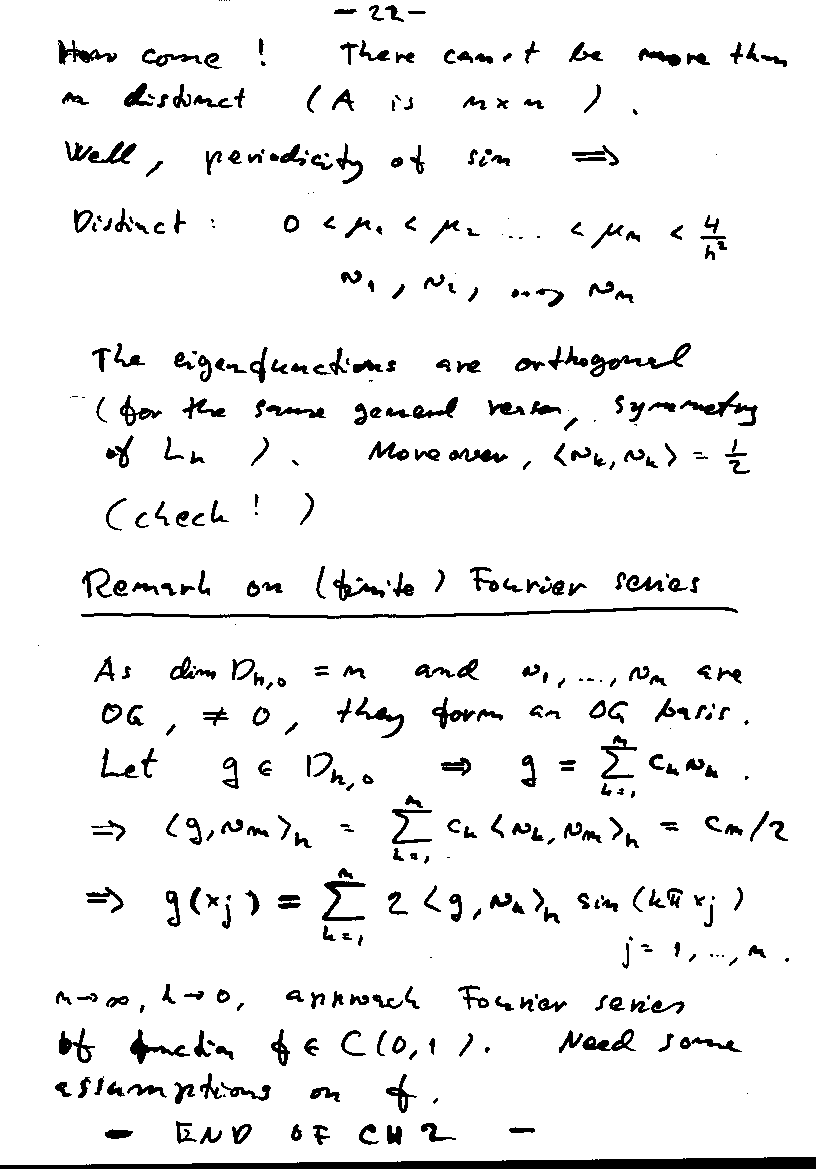 - 22 -
How come! There cannot be more than
n distinct (A is n×n).
Well, periodicity of sin ⇒
Distinct: 0 < μ₁ < μ₂ ... < μₙ < 4/h²
v₁, v₂, ..., vₙ
The eigenfunctions are orthogonal
(for the same general reason, symmetry
of Lₕ). Moreover, ⟨vₖ, vₖ⟩ = 1/2
(check!)
Remark on (finite) Fourier series
As dim Dₕ,₀ = n and v₁, ..., vₙ are
OG, ≠ 0, they form an OG basis.
Let g ∈ Dₕ,₀ ⇒ g = Σₖ₌₁ⁿ cₖvₖ.
⇒ ⟨g, vₘ⟩ₕ = Σₖ₌₁ⁿ cₖ⟨vₖ, vₘ⟩ₕ = cₘ/2
⇒ g(xⱼ) = Σₖ₌₁ⁿ 2⟨g, vₖ⟩ₕ sin(kπxⱼ)
j = 1, ..., n.
n→∞, h→0, approach Fourier series
of function f ∈ C(0,1). Need some
assumptions on f.
- END OF CH 2 -